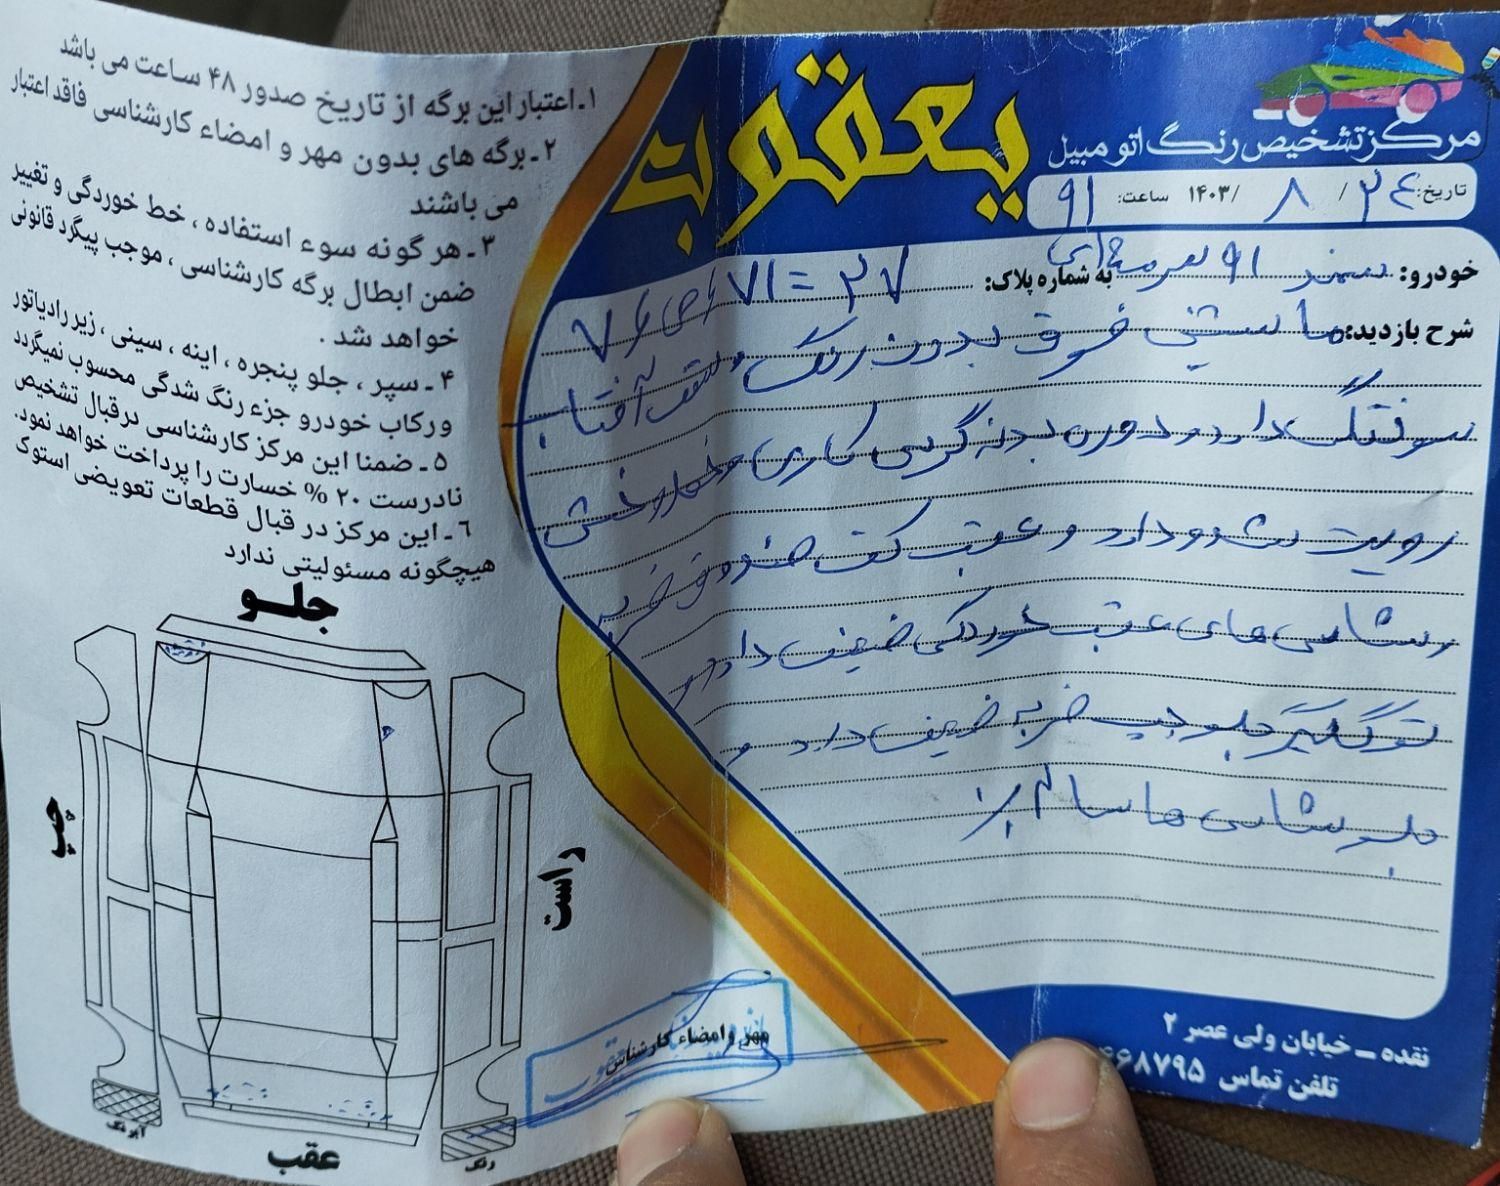 یعقوب
مرکز تشخیص رنگ اتومبیل
تاریخ: ۲۴ / ۸ / ۱۴۰۳ ساعت: ۹۱
خودرو: سمند ۹۱ به شماره پلاک: ۲۷ = ۷۱
شرح بازدید: ماشین فوق بدون رنگ و سقف آفتاب
سوختگی دارد و دور بدنه گریس کاری و خط و خش
رویت شد و دارد و عقب کف صندوق ضربه
و شاسی های عقب خوردگی ضعیف دارد و
گلگیر جلو چپ ضربه ضعیف دارد و
جلو شاسی ها سالم
نقده - خیابان ولی عصر ۲
تلفن تماس ۴۶۸۷۹۵
۱ـ اعتبار این برگه از تاریخ صدور ۴۸ ساعت می باشد
۲ـ برگه های بدون مهر و امضاء کارشناسی فاقد اعتبار
می باشند
۳ـ هر گونه سوء استفاده ، خط خوردگی و تغییر
ضمن ابطال برگه کارشناسی ، موجب پیگرد قانونی
خواهد شد .
۴ـ سپر ، جلو پنجره ، اینه ، سینی ، زیر رادیاتور
و رکاب خودرو جزء رنگ شدگی محسوب نمیگردد
۵ـ ضمنا این مرکز کارشناسی در قبال تشخیص
نادرست ۲۰ % خسارت را پرداخت خواهد نمود.
۶ـ این مرکز در قبال قطعات تعویضی استوک
هیچگونه مسئولیتی ندارد
جلـو
چپ
راست
عقب
رنگ
مهر و امضاء کارشناس